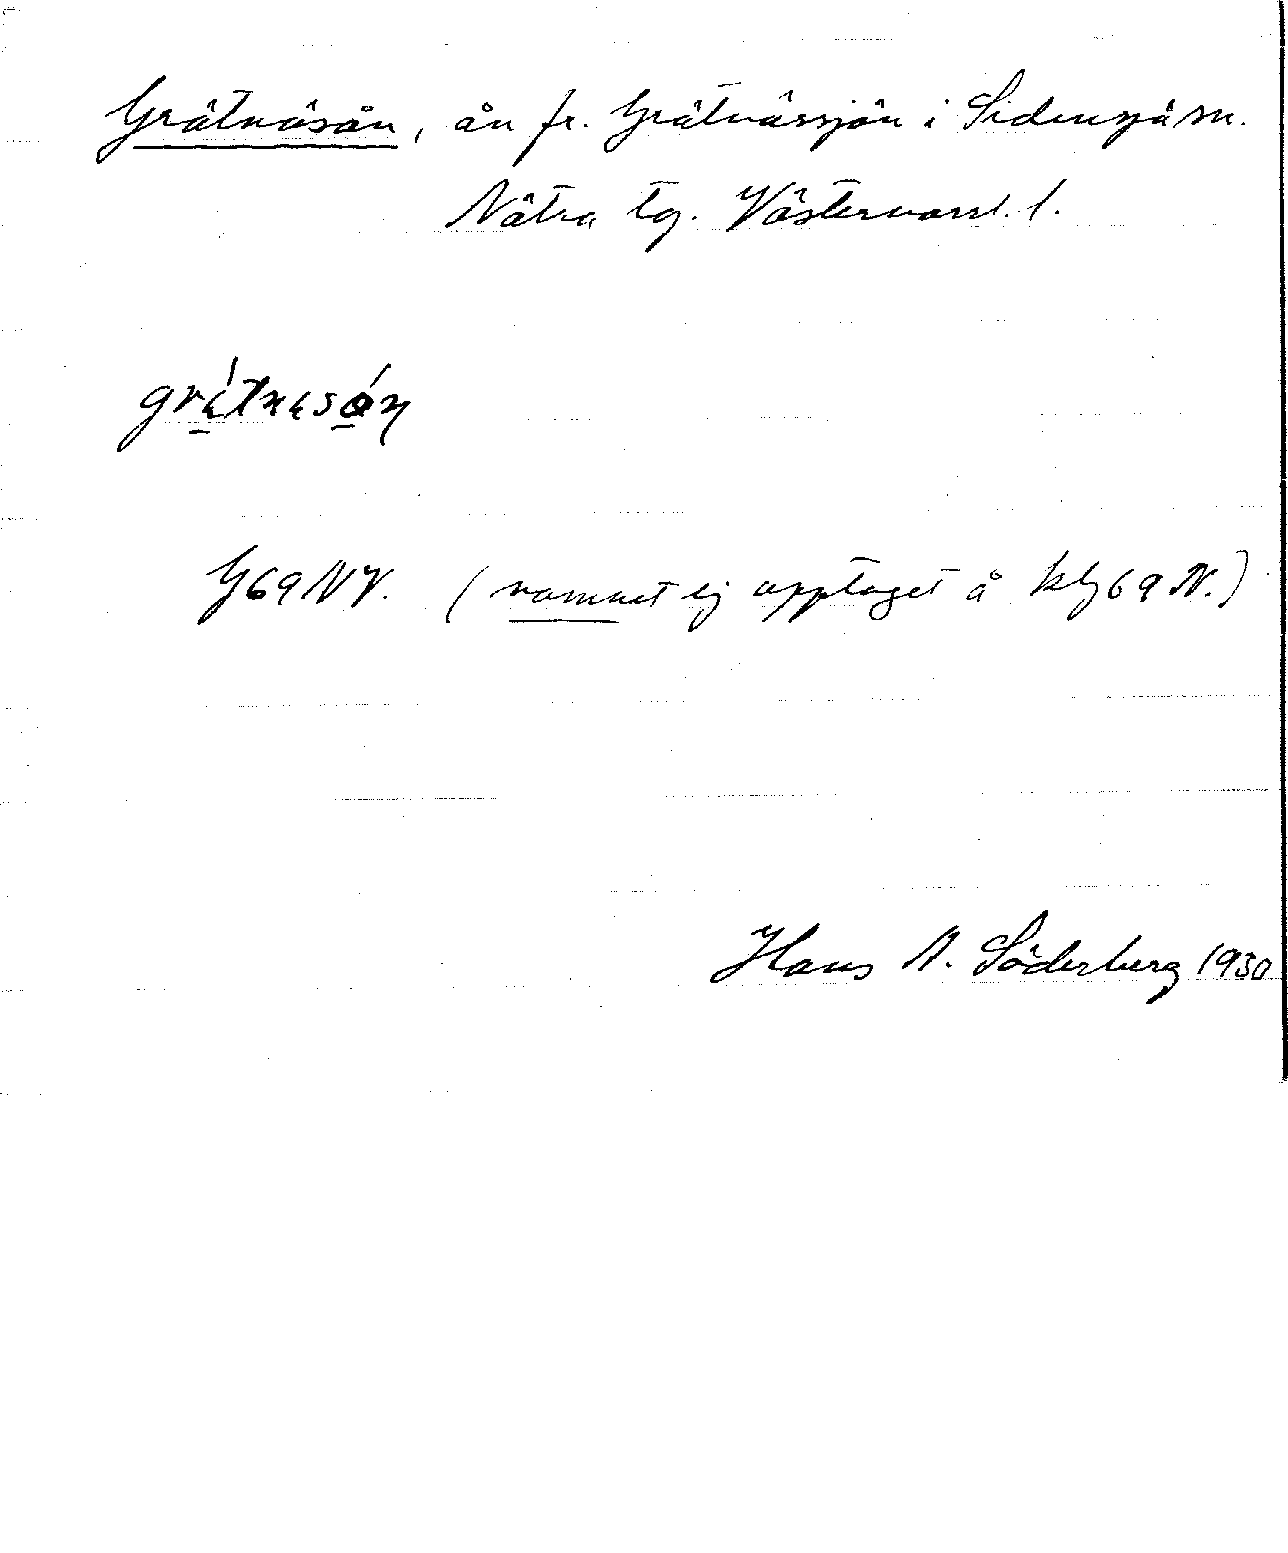 Grätnäsån, ån fr. Grätnässjön i Sidensjö sn.
Nätra tg. Västernorrl. l.
G69NV. (namnet ej upptaget å kbg69N.)
Hans N. Söderberg 1930